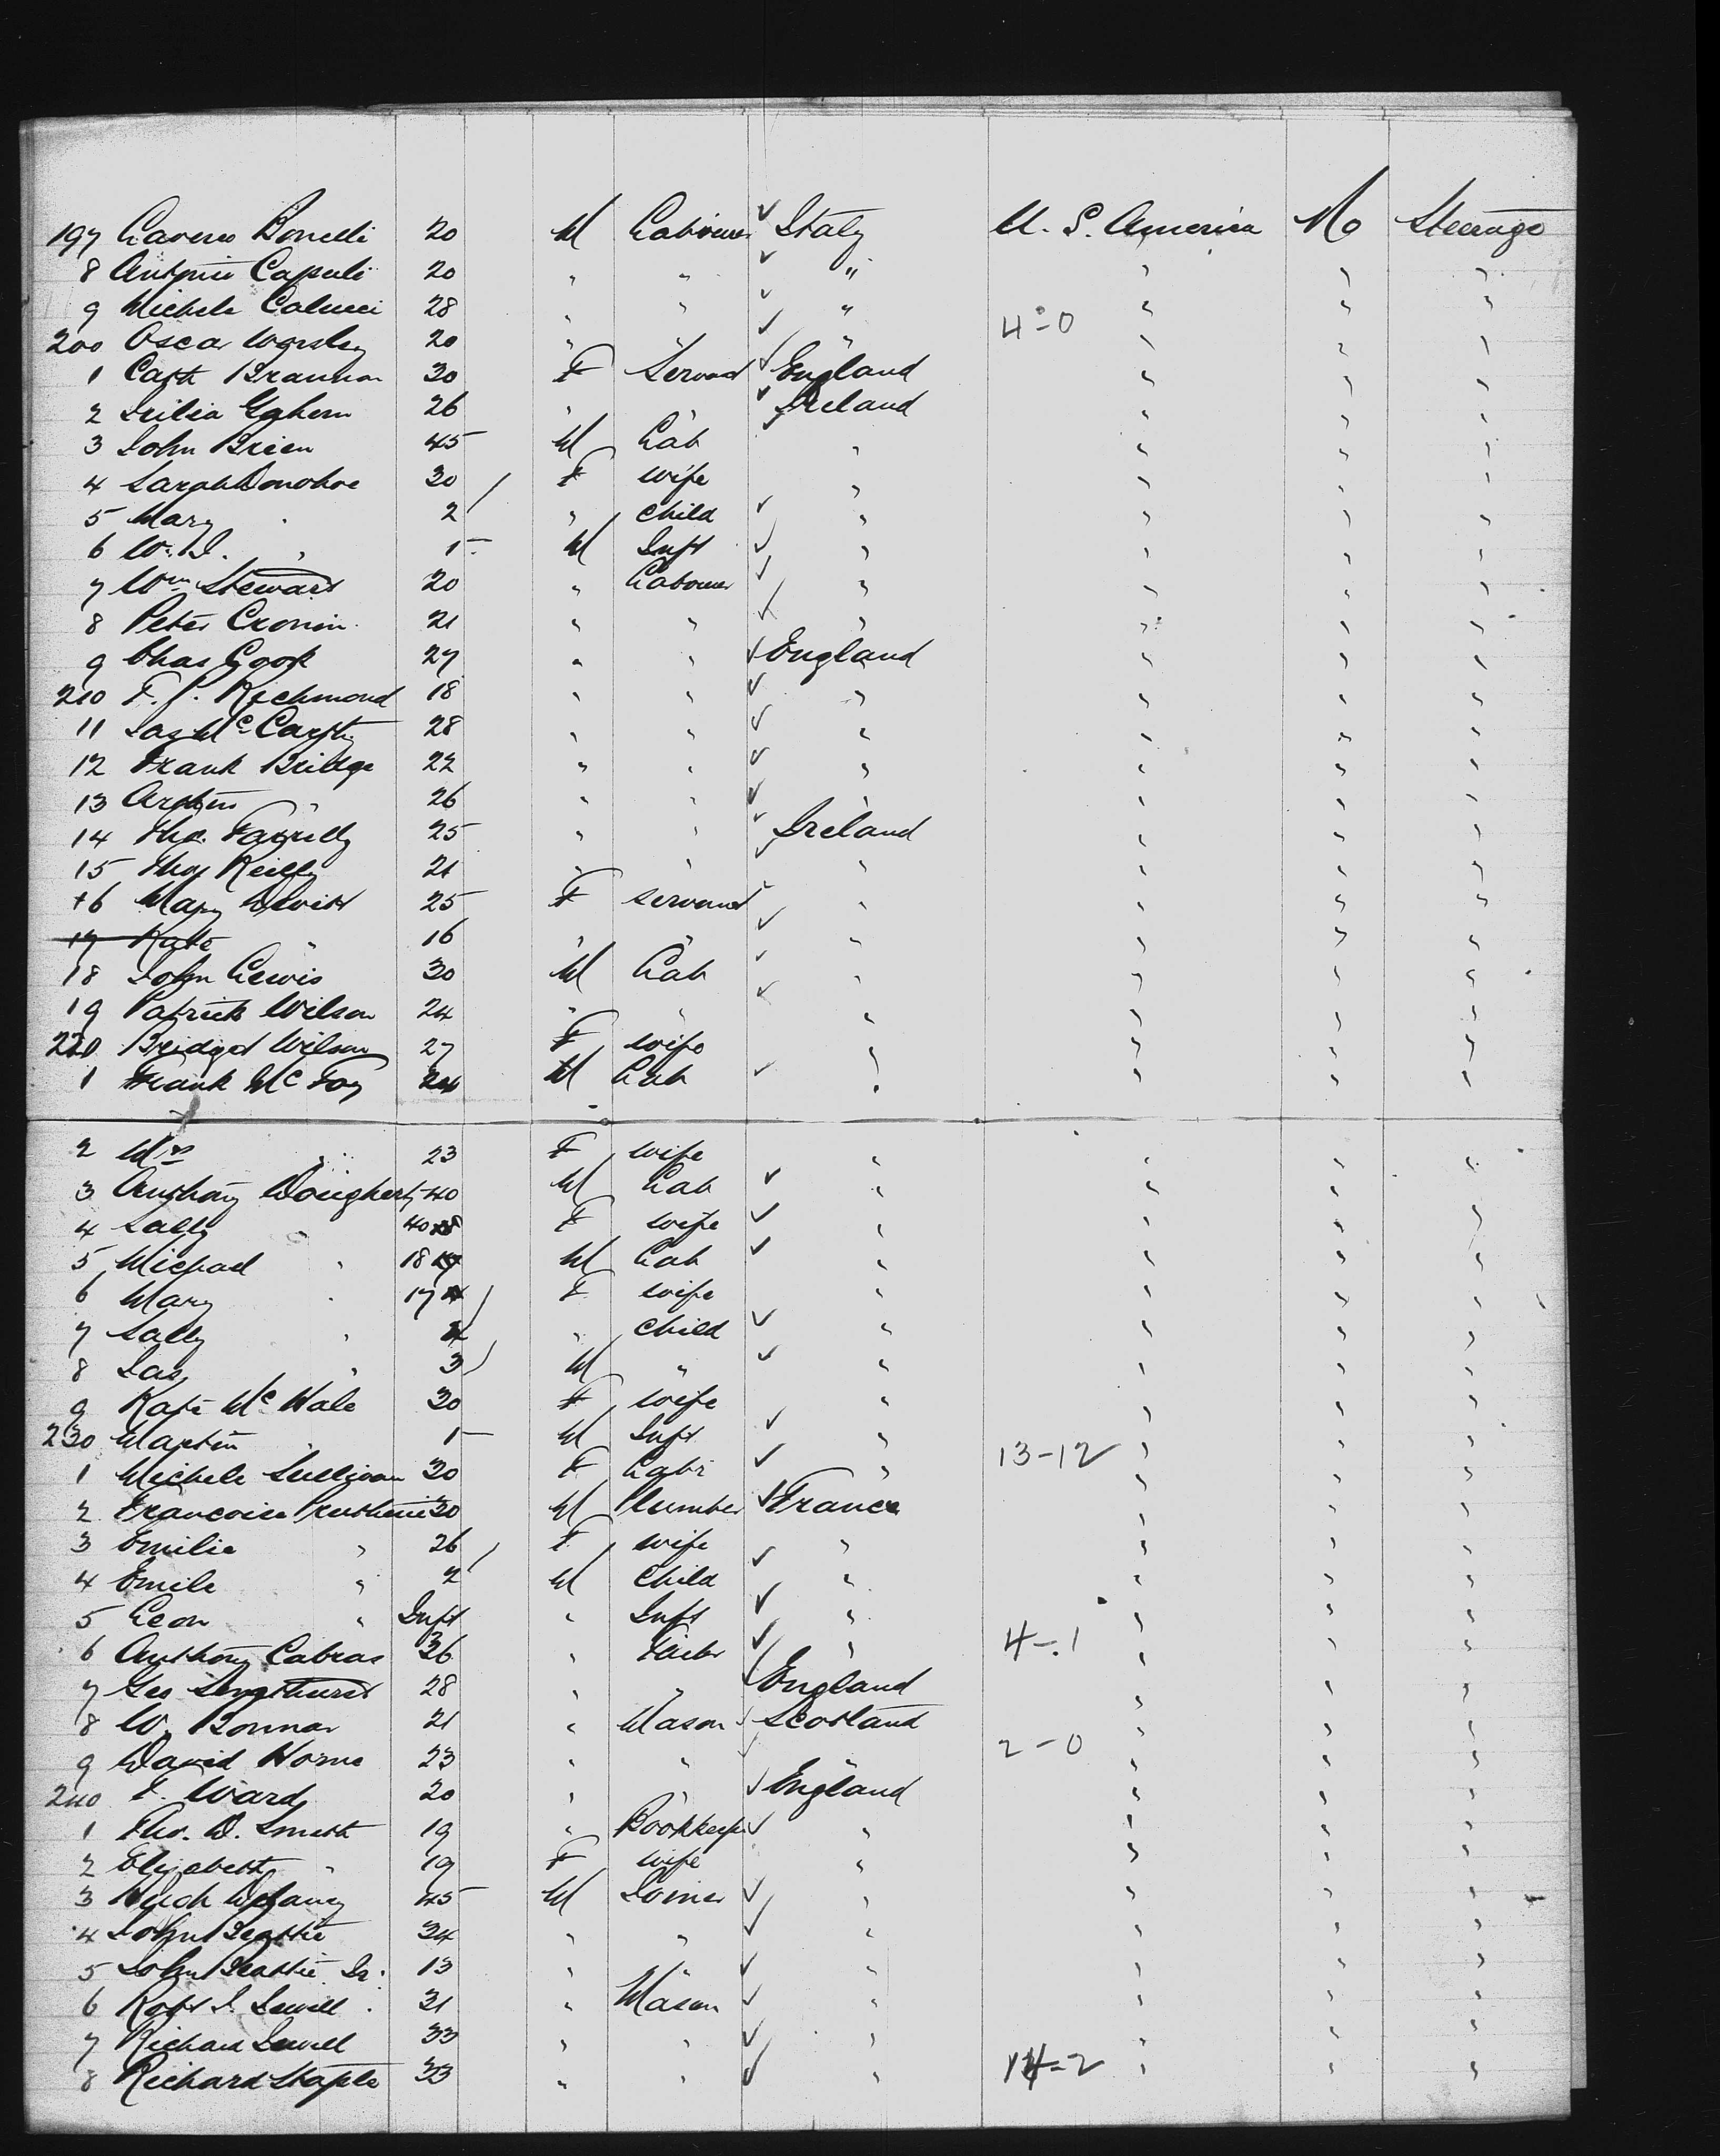 197 Laverio Bonelli 20 M Labourer ✓ Italy U. S. America No Steerage
8 Antonio Capuli 20 " " ✓ " " " "
9 Michele Colucci 28 " " ✓ " " " "
200 Oscar Worsley 20 " " ✓ " 4-0 " " "
1 Cath Brannon 30 F Servant ✓ England " " "
2 26 " " ✓ Ireland " " "
3 John Brien 45 M Lab ✓ " " " "
4 Sarah Donohoe 30 F wife " " " "
5 Mary " 2 " child ✓ " " " "
6 W. J. " 1 M Inft ✓ " " " "
7 Wm Stewart 20 " Labourer ✓ " " " "
8 Peter Cronin 21 " " ✓ " " " "
9 Chas Cook 27 " " ✓ England " " "
210 F. J. Richmond 18 " " ✓ " " " "
11 Jas McCarthy 28 " " ✓ " " " "
12 Frank Bridge 22 " " ✓ " " " "
13 Arthur " 26 " " ✓ " " " "
14 Tho. Farrelly 25 " " ✓ Ireland " " "
15 Thos Reilly 21 " " ✓ " " " "
16 Mary Devitt 25 F servant ✓ " " " "
17 Kate " 16 " " ✓ " " " "
18 John Lewis 30 M Lab ✓ " " " "
19 Patrick Wilson 24 " " ✓ " " " "
220 Bridget Wilson 27 F wife " " " "
1 Frank McFoy 24 M Lab ✓ " " " "
2 Mrs " 23 F wife " " " "
3 Anthony Dougherty 40 M Lab ✓ " " " "
4 Sally " 40 F wife ✓ " " " "
5 Michael " 18 M Lab ✓ " " " "
6 Mary " 17 F wife " " " "
7 Sally " 4 " child ✓ " " " "
8 Jas " 3 M " ✓ " " " "
9 Kate McHale 30 F wife " " " "
230 Martin " 1 M Inft ✓ " " " "
1 Michele Sullivan 30 F Labr ✓ " 13-12 " " "
2 Francoise 30 M Plumber ✓ France " " "
3 Emilie " 26 F wife " " " "
4 Emile " 2 M Child ✓ " " " "
5 Leon " Inft " Inft ✓ " " " "
6 Anthony Cabras 36 " ✓ " 4-1 " " "
7 Geo Longhurst 28 " " ✓ England " " "
8 W. Bonnar 21 " Mason ✓ Scotland " " "
9 David Horne 23 " " ✓ " 2-0 " " "
240 F. Ward 20 " " ✓ England " " "
1 Tho. D. Smith 19 " Bookkeeper ✓ " " " "
2 Elizabeth " 19 F wife " " " "
3 Hugh Delaney 45 M Joiner ✓ " " " "
4 John Beattie 34 " " ✓ " " " "
5 John Beattie Jr. 13 " " ✓ " " " "
6 Robt J. Sewell 31 " Mason ✓ " " " "
7 Richard Sewell 33 " " ✓ " " " "
8 Richard Staple 33 " " ✓ " 14-2 " " "